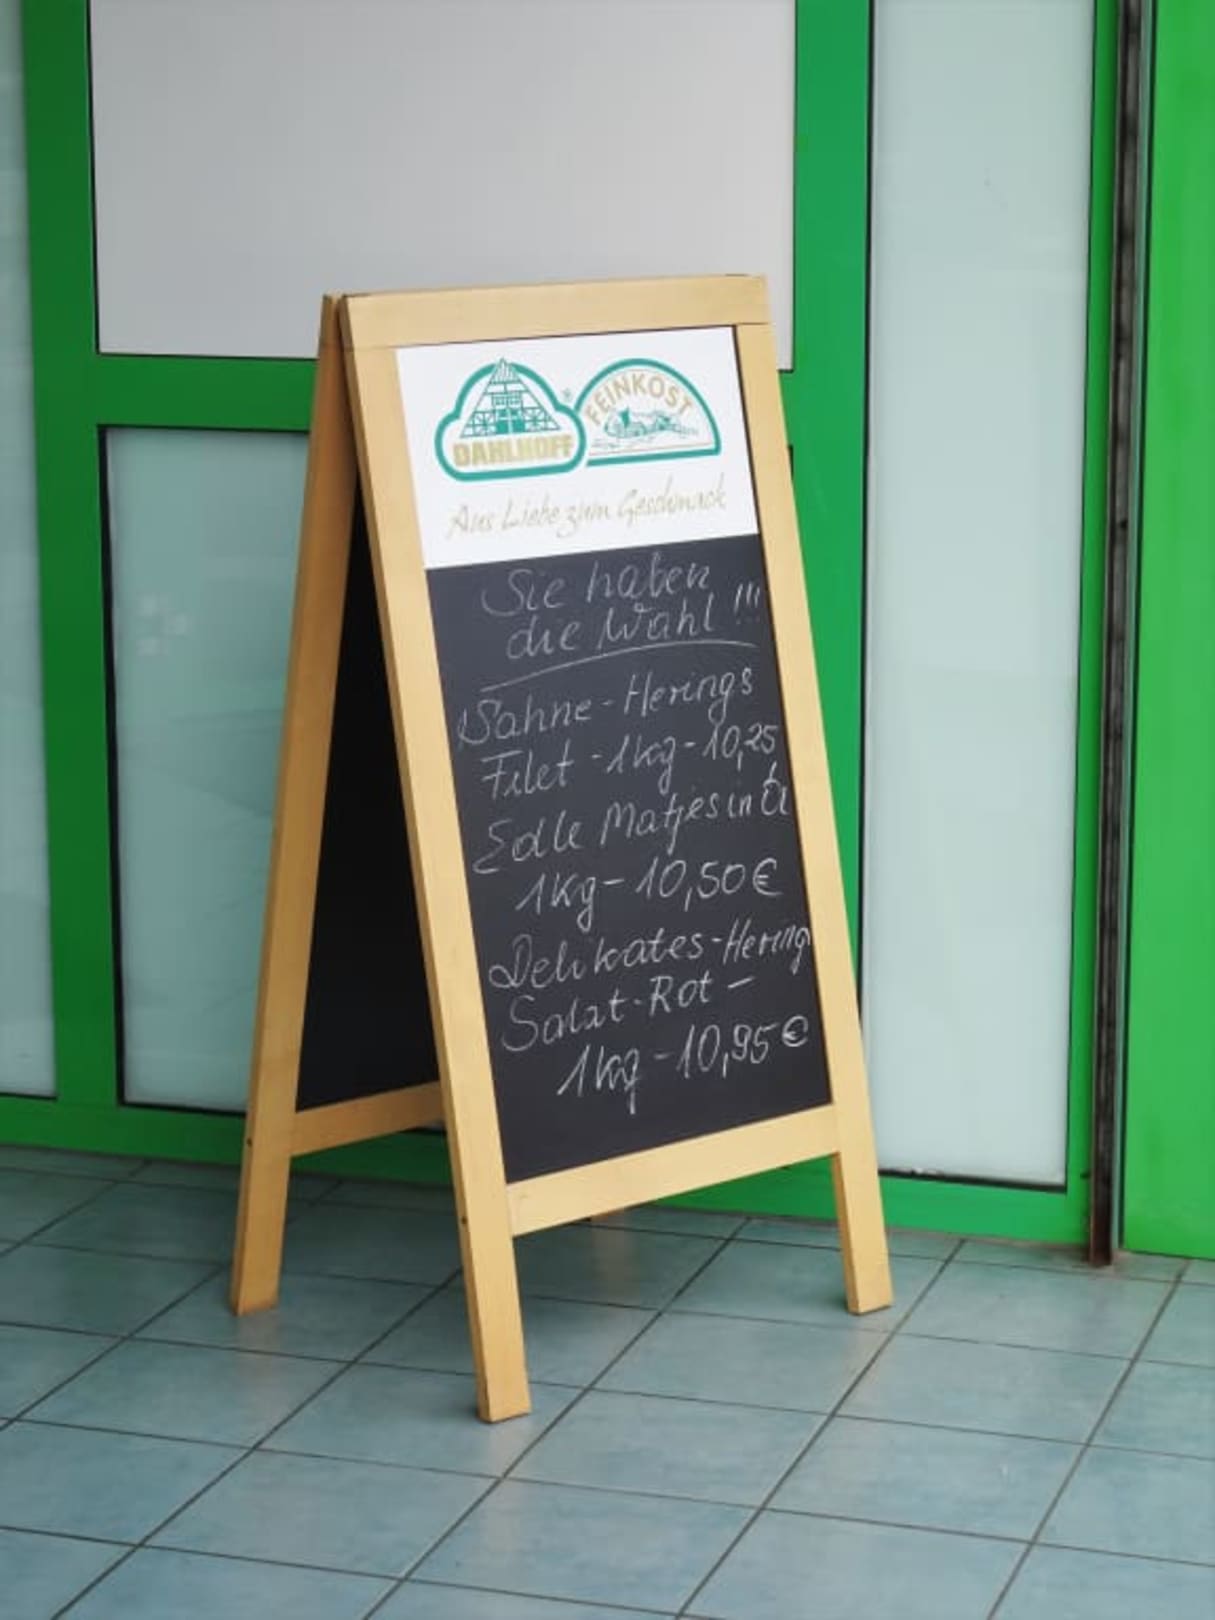 DAHLHOFF ®
FEINKOST
Aus Liebe zum Geschmack
Sie haben
die Wahl!!!
Sahne-Herings
Filet - 1kg - 10,25
Edle Matjes in Öl
1kg - 10,50 €
Delikates-Hering
Salat-Rot -
1kg - 10,95 €